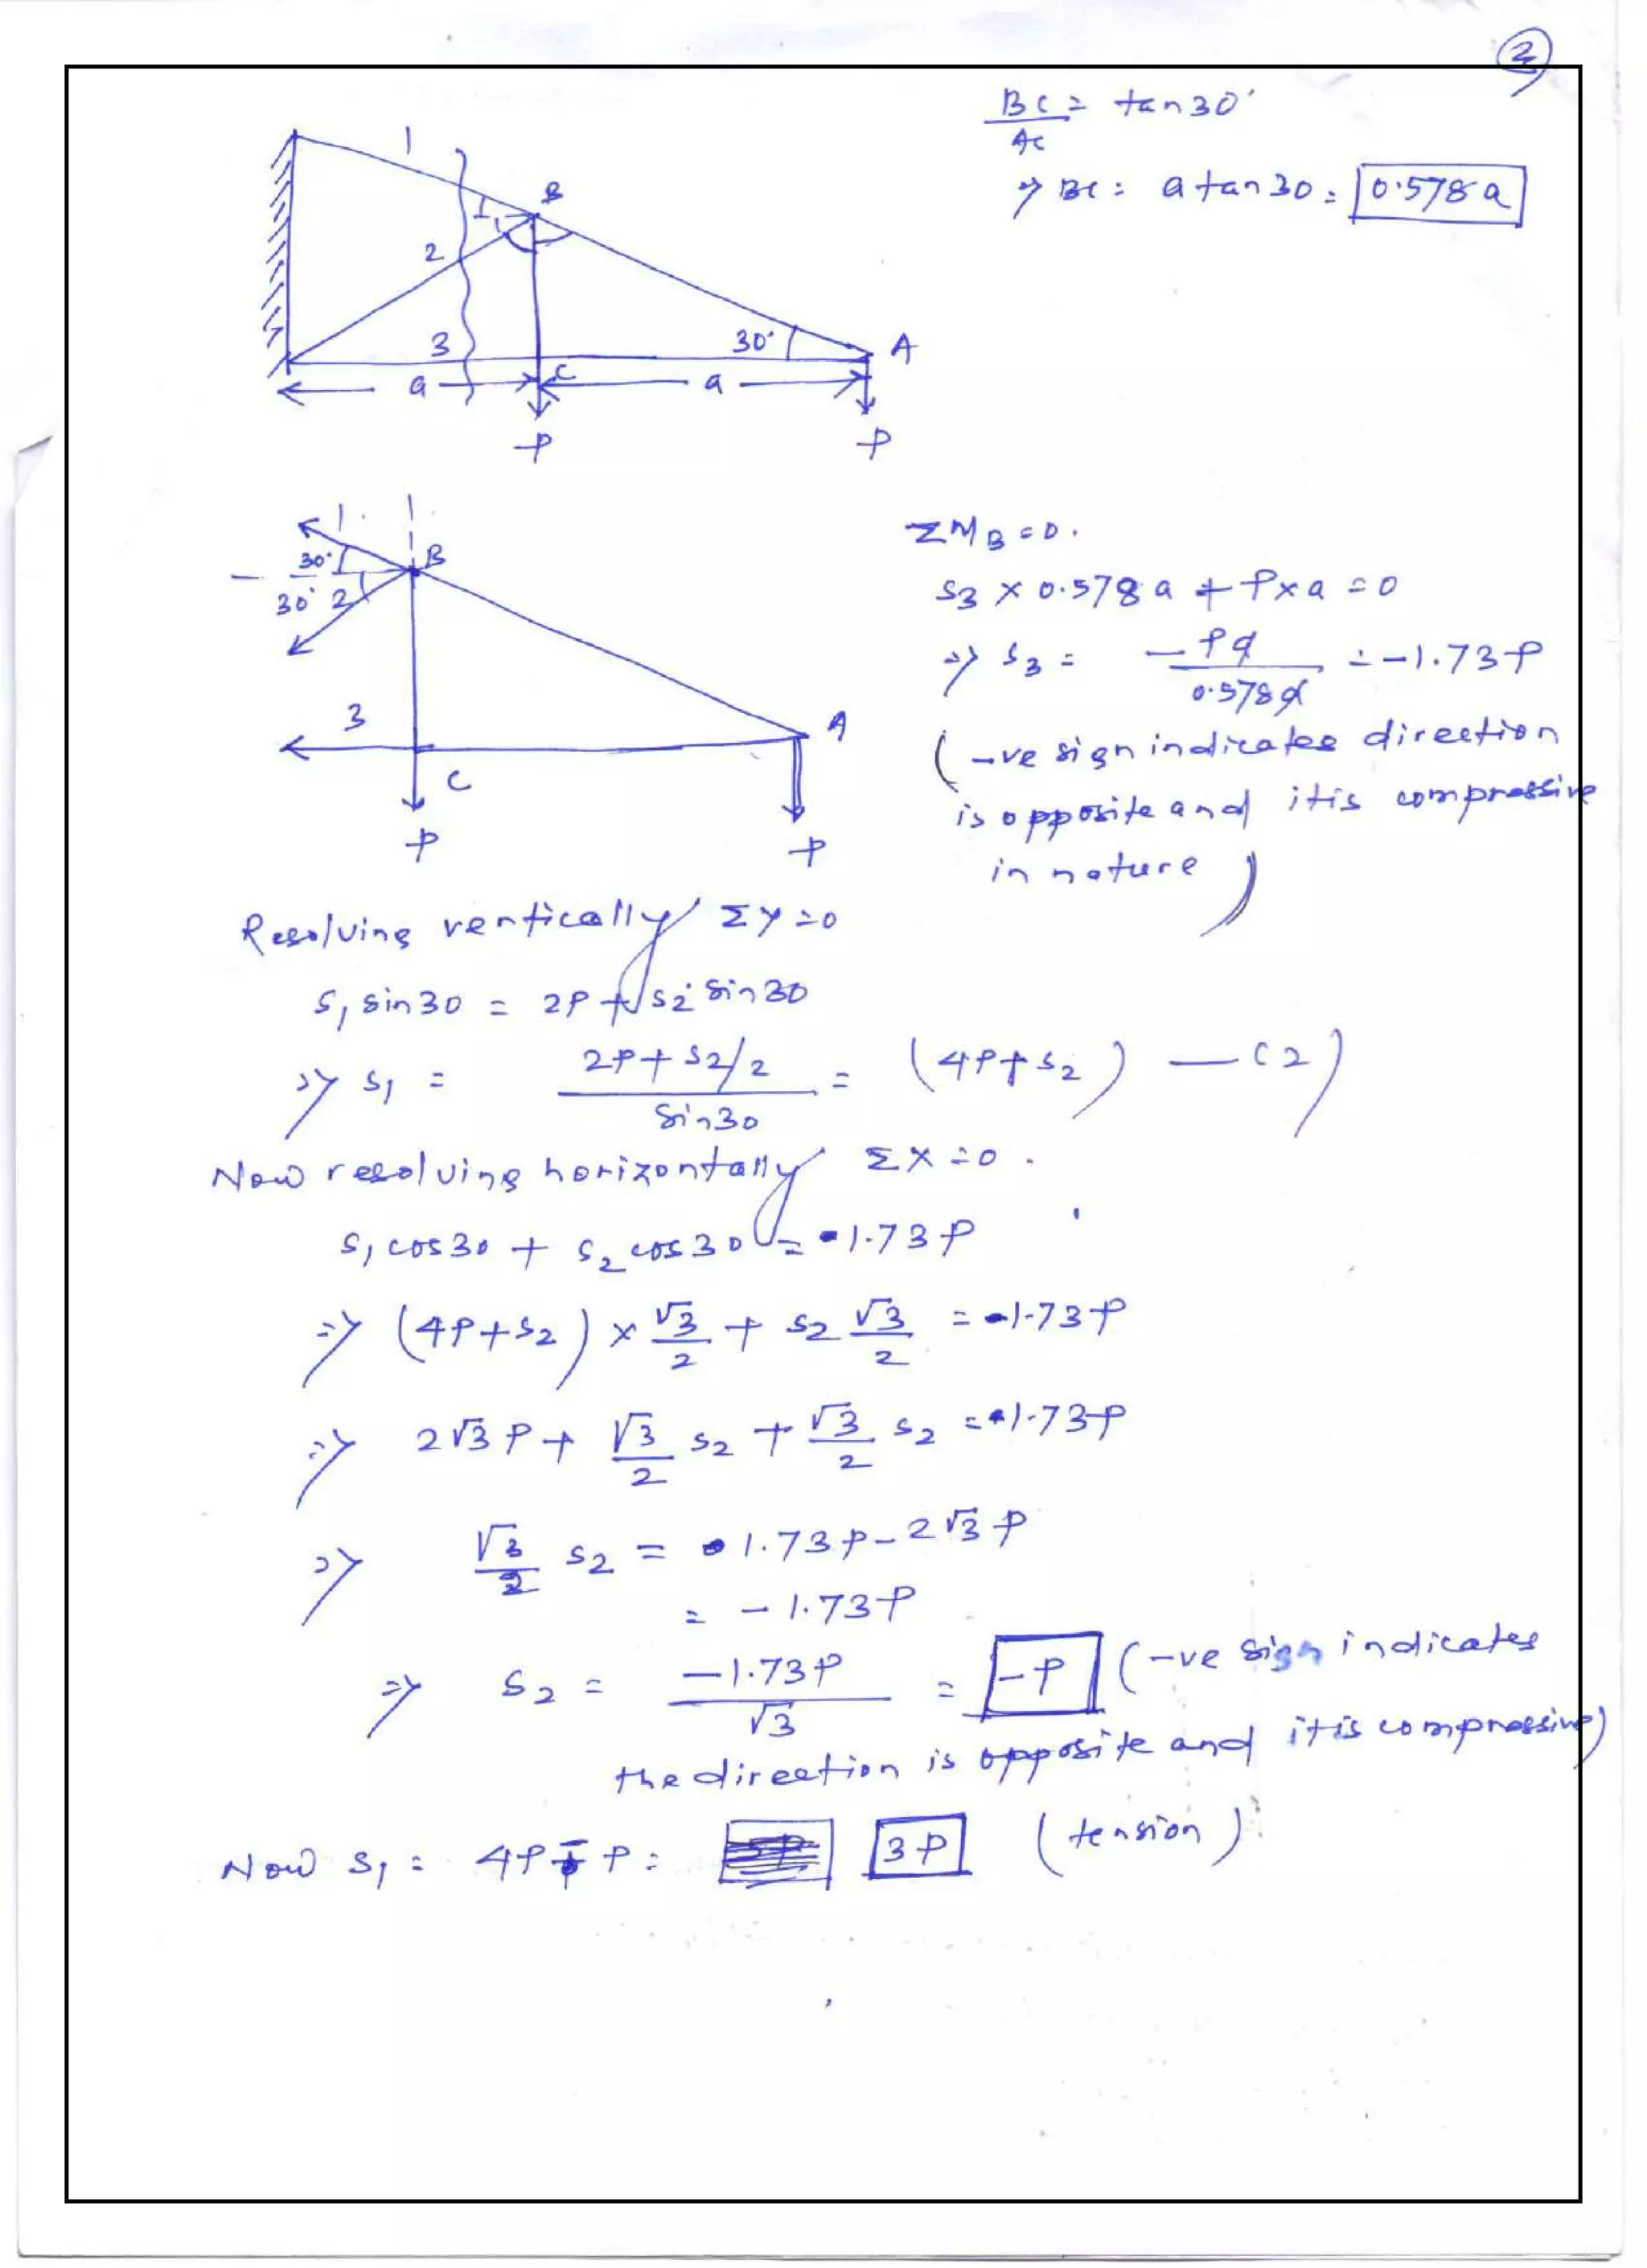 2
BC/AC = tan30°
⇒ BC = a tan30 = 0.578a
1
B
2
3
30°
A
C
a
a
P
P
1
30°
B
30° 2
3
A
C
P
P
ΣM_B = 0.
S₃ × 0.578a + P×a = 0
⇒ S₃ = -Pa/0.578a = -1.73P
(-ve sign indicates direction
is opposite and it is compressive
in nature)
Resolving vertically ΣY = 0
S₁ sin30 = 2P + S₂ sin30
⇒ S₁ = (2P + S₂/2)/sin30 = (4P + S₂) — (2)
Now resolving horizontally ΣX = 0.
S₁ cos30 + S₂ cos30 = 1.73P
⇒ (4P + S₂) × √3/2 + S₂ √3/2 = 1.73P
⇒ 2√3 P + √3/2 S₂ + √3/2 S₂ = 1.73P
⇒ √3/2 S₂ = 1.73P - 2√3 P
= -1.73P
⇒ S₂ = -1.73P/√3 = -P (-ve sign indicates
the direction is opposite and it is compressive)
Now S₁ = 4P - P = 3P (tension)